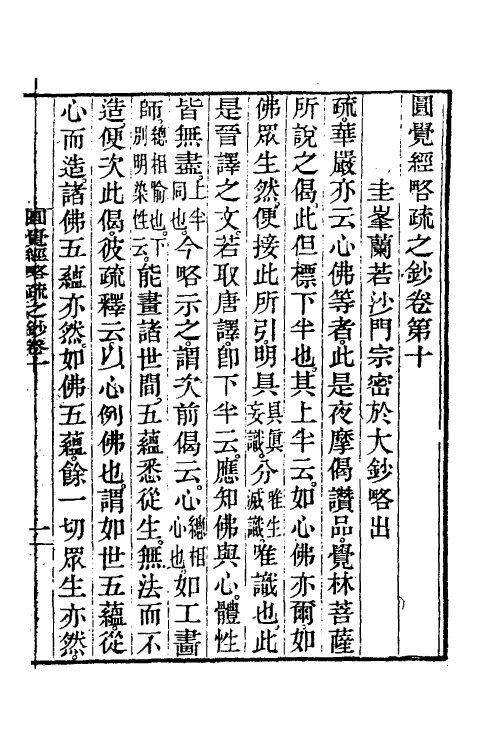 圓覺經略疏之鈔卷第十
圭峯蘭若沙門宗密於大鈔略出
疏。華嚴亦云心佛等者。此是夜摩偈讚品。覺林菩薩
所說之偈。此但標下半也。其上半云。如心佛亦爾。如
佛眾生然。便接此所引。明具具眞妄識。分唯生滅識。唯識也。此
是晉譯之文。若取唐譯。卽下半云。應知佛與心。體性
皆無盡。上半同也。今略示之。謂次前偈云。心總相心也。如工畫
師。總相喻也。下別明染性云。能畫諸世間。五蘊悉從生。無法而不
造。便次此偈。彼疏釋云。以心例佛也。謂如世五蘊。從
心而造。諸佛五蘊亦然。如佛五蘊。餘一切眾生亦然。
圓覺經略疏之鈔卷十
一